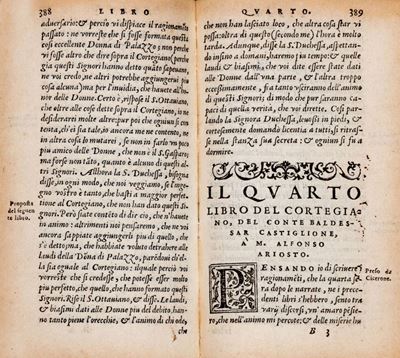 388 LIBRO
aduersario: & perciò vi dispiace il ragionamẽto
passato: ne vorreste che si fosse formata questa
cosi eccellente Donna di Palazzo; non perche
vi fosse altro che dire sopra il Cortegiano (perche
gia questi Signori hanno detto quāto sapeuano,
ne voi credo, ne altri potrebbe aggiungerui piu
cosa alcuna) ma per l'inuidia, che hauete all'ho
nor delle Donne. Certo è, rispose il S. Ottauiano,
che oltre alle cose dette sopra il Cortegiano, io ne
desiderarei molte altre: pur poi che ogniun si con
tenta, ch'ei sia tale, io ancora me ne contento, ne
in altra cosa lo mutarei, se non in farlo vn poco
piu amico delle Donne, che non è il S. Gasparo;
ma forse non tāto, quanto è alcuno di questi al-
tri Signori. Allhora la S. Duchessa, bisogna
disse, in ogni modo, che noi veggiamo, se l'inge-
gno vostro è tanto, che basti a dar maggior perfet-
tione al Cortegiano, che non han dato questi Si-
gnori. Però siate contento di dir ciò, che n'hauete
in animo: altrimenti noi pensaremo, che ne voi
ancora sappiate aggiungerli piu di quello, che
s'è detto; ma, che habbiate voluto detrahere alle
laudi della Dõna di Palazzo, parēdoui ch'el-
la sia eguale al Cortegiano: ilquale perciò vi
vorreste che si credesse, che potesse esser molto
piu perfetto, che quello, che hanno formato questi
Signori. Rise il S. Ottauiano, & disse, Le laudi,
& biasimi dati alle Donne piu del debito, han-
no tanto piene l'orecchie, & l'animo di chi ode,
che
Proposta
del seguen
te libro.
QVARTO. 389
che non han lasciato loco, che altra cosa star vi
possa: oltra di questo (secondo me) l'hora è molto
tarda. Adunque, disse la S. Duchessa, aspettan-
do insino a domani, haremo piu tempo; & quelle
laudi & biasimi, che voi dite esser state dati
alle Donne dall'vna parte, & l'altra troppo
eccessiuamente, fra tanto vsciranno dell'animo
di questi Signori; di modo che pur saranno ca-
paci di quella verità, che voi direte. Cosi par-
lando la Signora Duchessa, leuossi in piedi, &
cortesemente donando licentia a tutti, si trasse
nella stanza sua secreta: & ogniun si fu a
dormire.
IL QVARTO
LIBRO DEL CORTEGIA-
NO, DEL CONTE BALDES-
SAR CASTIGLIONE,
A M. ALFONSO
ARIOSTO.
PENSANDO io di scriuere i
ragionamenti, che la quarta se
ra dopo le narrate, ne i prece-
denti libri s'hebbero, sento tra
varij discorsi, vn'amaro pẽsie-
ro, che nell'animo mi percote; & delle miserie hu
B 3
Preso da
Cicerone.